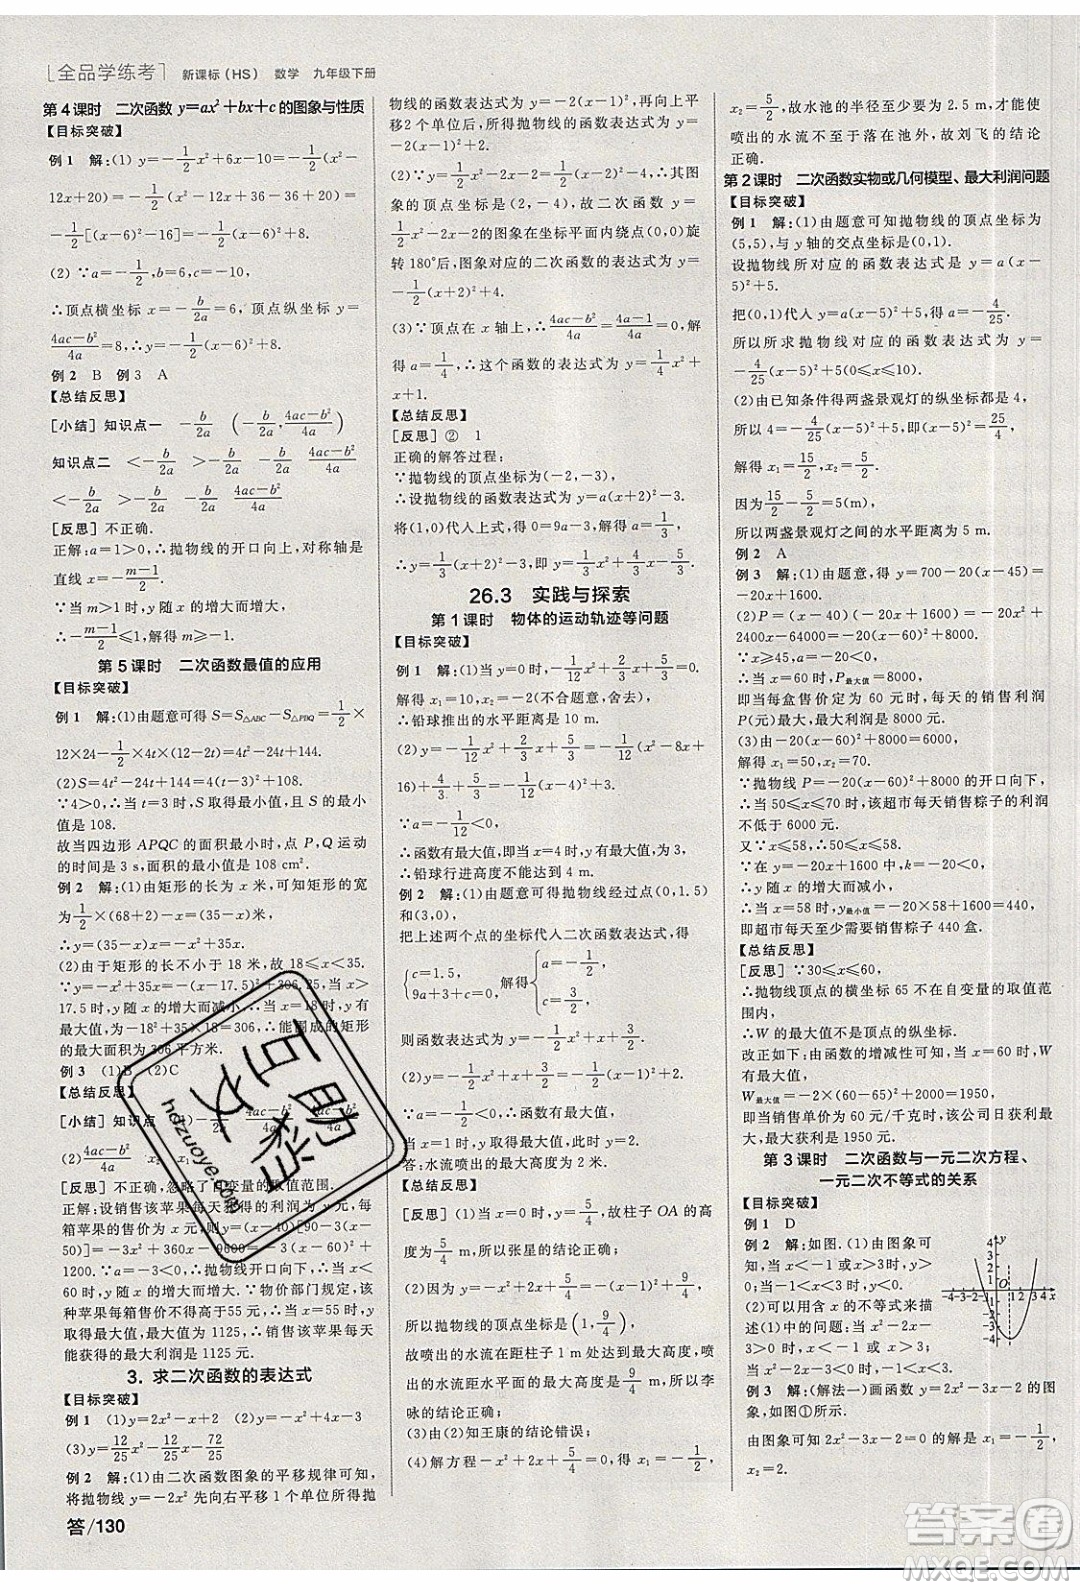 全品学练考 新课标（HS） 数学 九年级下册
第4课时 二次函数 y=ax²+bx+c的图象与性质
【目标突破】
例1 解:(1) y=-1/2x²+6x-10=-1/2(x²-
12x+20)=-1/2(x²-12x+36-36+20)=
-1/2[(x-6)²-16]=-1/2(x-6)²+8.
(2) ∵a=-1/2,b=6,c=-10,
∴顶点横坐标 x=-b/2a=6,顶点纵坐标 y=
(4ac-b²)/4a=8,∴y=-1/2(x-6)²+8.
例2 B 例3 A
【总结反思】
[小结] 知识点一 -b/2a (-b/2a, (4ac-b²)/4a)
知识点二 -b/2a (4ac-b²)/4a >-b/2a
<-b/2a <-b/2a >-b/2a
[反思] 不正确.
正解:a=1>0,∴抛物线的开口向上,对称轴是
直线 x=-(m-1)/2.
∵当 m>1 时,y 随 x 的增大而增大,
∴-(m-1)/2≤1,解得 m≥-1.
第5课时 二次函数最值的应用
【目标突破】
例1 解:(1)由题意可得 S=S△ABC-S△PBQ=1/2×
12×24-1/2×4t×(12-2t)=4t²-24t+144.
(2)S=4t²-24t+144=4(t-3)²+108.
∵4>0,∴当 t=3 时,S 取得最小值,且最小
值是 108.
故当四边形 APQC 的面积最小时,点 P,Q 运动
的时间是 3 s,面积的最小值是 108 cm².
例2 解:(1)由矩形的长为 x 米,可知矩形的宽
为1/2×(68+2)-x=(35-x)米,
∴y=(35-x)x=-x²+35x.
(2)由于矩形的长不小于 18 米,故 18≤x<35.
∵y=-x²+35x=-(x-17.5)²+306.25,当 x>
17.5 时,y 随 x 的增大而减小,∴当 x=18 时,y
有最大值,为-18²+35×18=306,∴能围成的矩形
的最大面积为 306 平方米.
例3 (1)B (2)C
【总结反思】
[小结] 知识点 (1)-b/2a (4ac-b²)/4a -b/2a (4ac-b²)/4a
[反思] 不正确,忽略了自变量的取值范围.
正解:设销售该苹果每天获得的利润为 y 元,每
箱苹果的售价为 x 元,则 y=(x-40)[90-3(x
1200.∵a=-3<0,∴抛物线开口向下,∴当 x<
60 时,y 随 x 的增大而增大.∵物价部门规定该
种苹果每箱售价不得高于55元,∴当 x=55时,
y 取得最大值,y最大值为 1125,∴销售该苹果每天
获得的最大利润是 1125 元.
3. 求二次函数的表达式
【目标突破】
例1 (1)y=2x²-x+2 (2)y=-1/2x²-x+4
(3)y=12/25x²-12/25x-72/25
例2 解:(1)由二次函数图象的平移规律可知,
将抛物线 y=-2x² 先向右平移 1 个单位所得抛
答/130
物线的函数表达式为 y=-2(x-1)²,再向上平
移2 个单位后,所得抛物线的函数表达式为 y=
-2(x-1)²+2.
(2)∵y=1/2x²-2x-2=1/2(x-2)²-4,∴其图
象的顶点坐标为(2,-4),故二次函数 y=
1/2x²-2x-2的图象在坐标平面内绕点(0,0)旋
转 180°后,图象对应的二次函数的表达式为 y=
-1/2(x+2)²+4.
(3)∵顶点在 x 轴上,∴(4ac-b²)/4a=(4a-1)/4a=0,解
得 a=1/4,∴这个函数的表达式为 y=1/4x²+
x+1.
【总结反思】
[反思] ② 1
正确的解答过程:
∵抛物线的顶点坐标为(-2,-3),
∴设抛物线的函数表达式为 y=a(x+2)²-3.
将(1,0)代入上式,得 0=9a-3,解得 a=1/3,
∴y=1/3(x+2)²-3,即 y=1/3x²+4/3x-5/3.
26.3 实践与探索
第1课时 物体的运动轨迹等问题
【目标突破】
例1 解:(1)当 y=0 时,-1/12x²+2/3x+5/3=0.
解得 x₁=10,x₂=-2(不合题意,舍去),
∴铅球推出的水平距离是 10 m.
(2)y=-1/12x²+2/3x+5/3=-1/12(x²-8x+
16)+4/3+5/3=-1/12(x-4)²+3.
∵a=-1/12<0,
∴函数有最大值,当 x=4 时,y最大值=3,
∴铅球行进高度不能达到 4 m.
例2 解:(1)由题意可得抛物线经过点(0,1.5)
和(3,0),
把上述两个点的坐标代入二次函数表达式,得
{c=1.5, 9a+3+c=0, 解得 {a=-1/2, c=3/2,
则函数表达式为 y=-1/2x²+x+3/2.
(2)y=-1/2x²+x+3/2=-1/2(x-1)²+2.
∵a=-1/2<0,∴函数有最大值,
当 x=1 时,y 取得最大值,此时 y=2.
答:水流喷出的最大高度为 2 米.
【总结反思】
[反思] (1)当 x=0 时,y=5/4,故柱子 OA 的高度为
5/4 m,所以张星的结论正确.
(2)因为 y=-x²+x+5/4=-(x-1/2)²+3/2,
所以抛物线的顶点坐标为
故喷出的水流在距柱子 1 m 处达到最大高度.
喷出的水流距水平面的最大高度是 9/4 m,所以李
咏的结论正确.
(3)由(2)可知王康的结论错误;
(4)解方程-x²+2x+5/4=0,得 x₁=-1/2,
x₂=5/2,故水池的半径至少要为 2.5 m,才能使
喷出的水流不至于落在池外,故刘飞的结论
正确.
第2课时 二次函数实物或几何模型、最大利润问题
【目标突破】
例1 解:(1)由题意可知抛物线的顶点坐标为
(5,5),与 y 轴的交点坐标为(0,1).
设抛物线所对应的函数表达式为 y=a(x-
5)²+5.
把(0,1)代入 y=a(x-5)²+5,得 a=-4/25.
所以所求抛物线对应的函数表达式为 y=
-4/25(x-5)²+5(0≤x≤10).
(2)由已知条件得两盏景观灯的纵坐标都是 4,
所以 4=-4/25(x-5)²+5,即4/25(x-5)²=1,
解得 x₁=15/2,x₂=5/2.
因为15/2-5/2=5(m),
所以两盏景观灯之间的水平距离为 5 m.
例2 A
例3 解:(1)由题意,得 y=700-20(x-45)=
-20x+1600.
(2)P=(x-40)(-20x+1600)=-20x²+
2400x-64000=-20(x-60)²+8000.
∵x≥45,a=-20<0,
∴当 x=60 时,P最大值=8000,
即当每盒售价定为 60 元时,每天的销售利润
P(元)最大,最大利润是 8000 元.
(3)由题意,得-20(x-60)²+8000=6000,
解得 x₁=50,x₂=70.
∵抛物线 P=-20(x-60)²+8000 的开口向下,
∴当 50≤x≤70 时,该超市每天销售粽子的利润
不低于 6000 元.
又∵x≤58,∴50≤x≤58.
∵在 y=-20x+1600 中,k=-20<0,
∴y 随 x 的增大而减小,
∴当 x=58 时,y最小值=-20×58+1600=440,
即超市每天至少销售粽子 440 盒.
【总结反思】
[反思] ∵30≤x≤60,
∴抛物线顶点的横坐标 65 不在自变量的取值范
围内,
∴W 的最大值不是顶点的纵坐标.
改正如下:由函数的增减性可知,当 x=60 时,W
有最大值,
W最大值=-2×(60-65)²+2000=1950,
即当销售单价为 60 元/千克时,该公司日获利最
大,最大获利是 1950 元.
第3课时 二次函数与一元二次方程、
一元二次不等式的关系
【目标突破】
例1 D
例2 解:如图.(1)由图象可
知,当 x<-1 或 x>3 时,y>
0;当-1<x<3 时,y<0.
(2)可以用含 x 的不等式来描
述(1)中的问题:当 x²-2x
-3>0 时,x<-1 或 x>3;当 x²-2x-3<0
时,-1<x<3.
例3 解:(解法一)画函数 y=2x²-3x-2 的图
象,如图①所示.
由图象可知2x²-3x-2=0 的解是 x₁=-1/2,
x₂=2.
y 4 3 2 1 O -4 -3 -2 -1 1 2 3 4 x -1 -2 -3 -4
互助文档
hdzuoye.com
答案圈
MXQE.COM